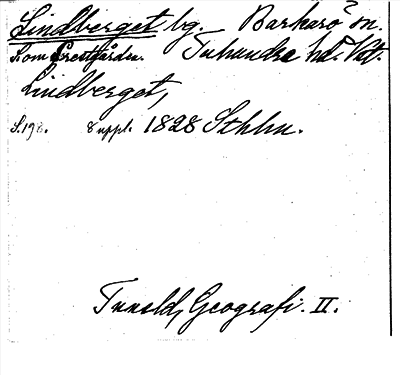 Lindberget bg. Barkarö sn.
Kom Prestgården. Tuhundra hd. Vstl.
Lindberget,
S. 198. 8 uppl. 1828 Sthlm.
Tuneld, Geografi. II.